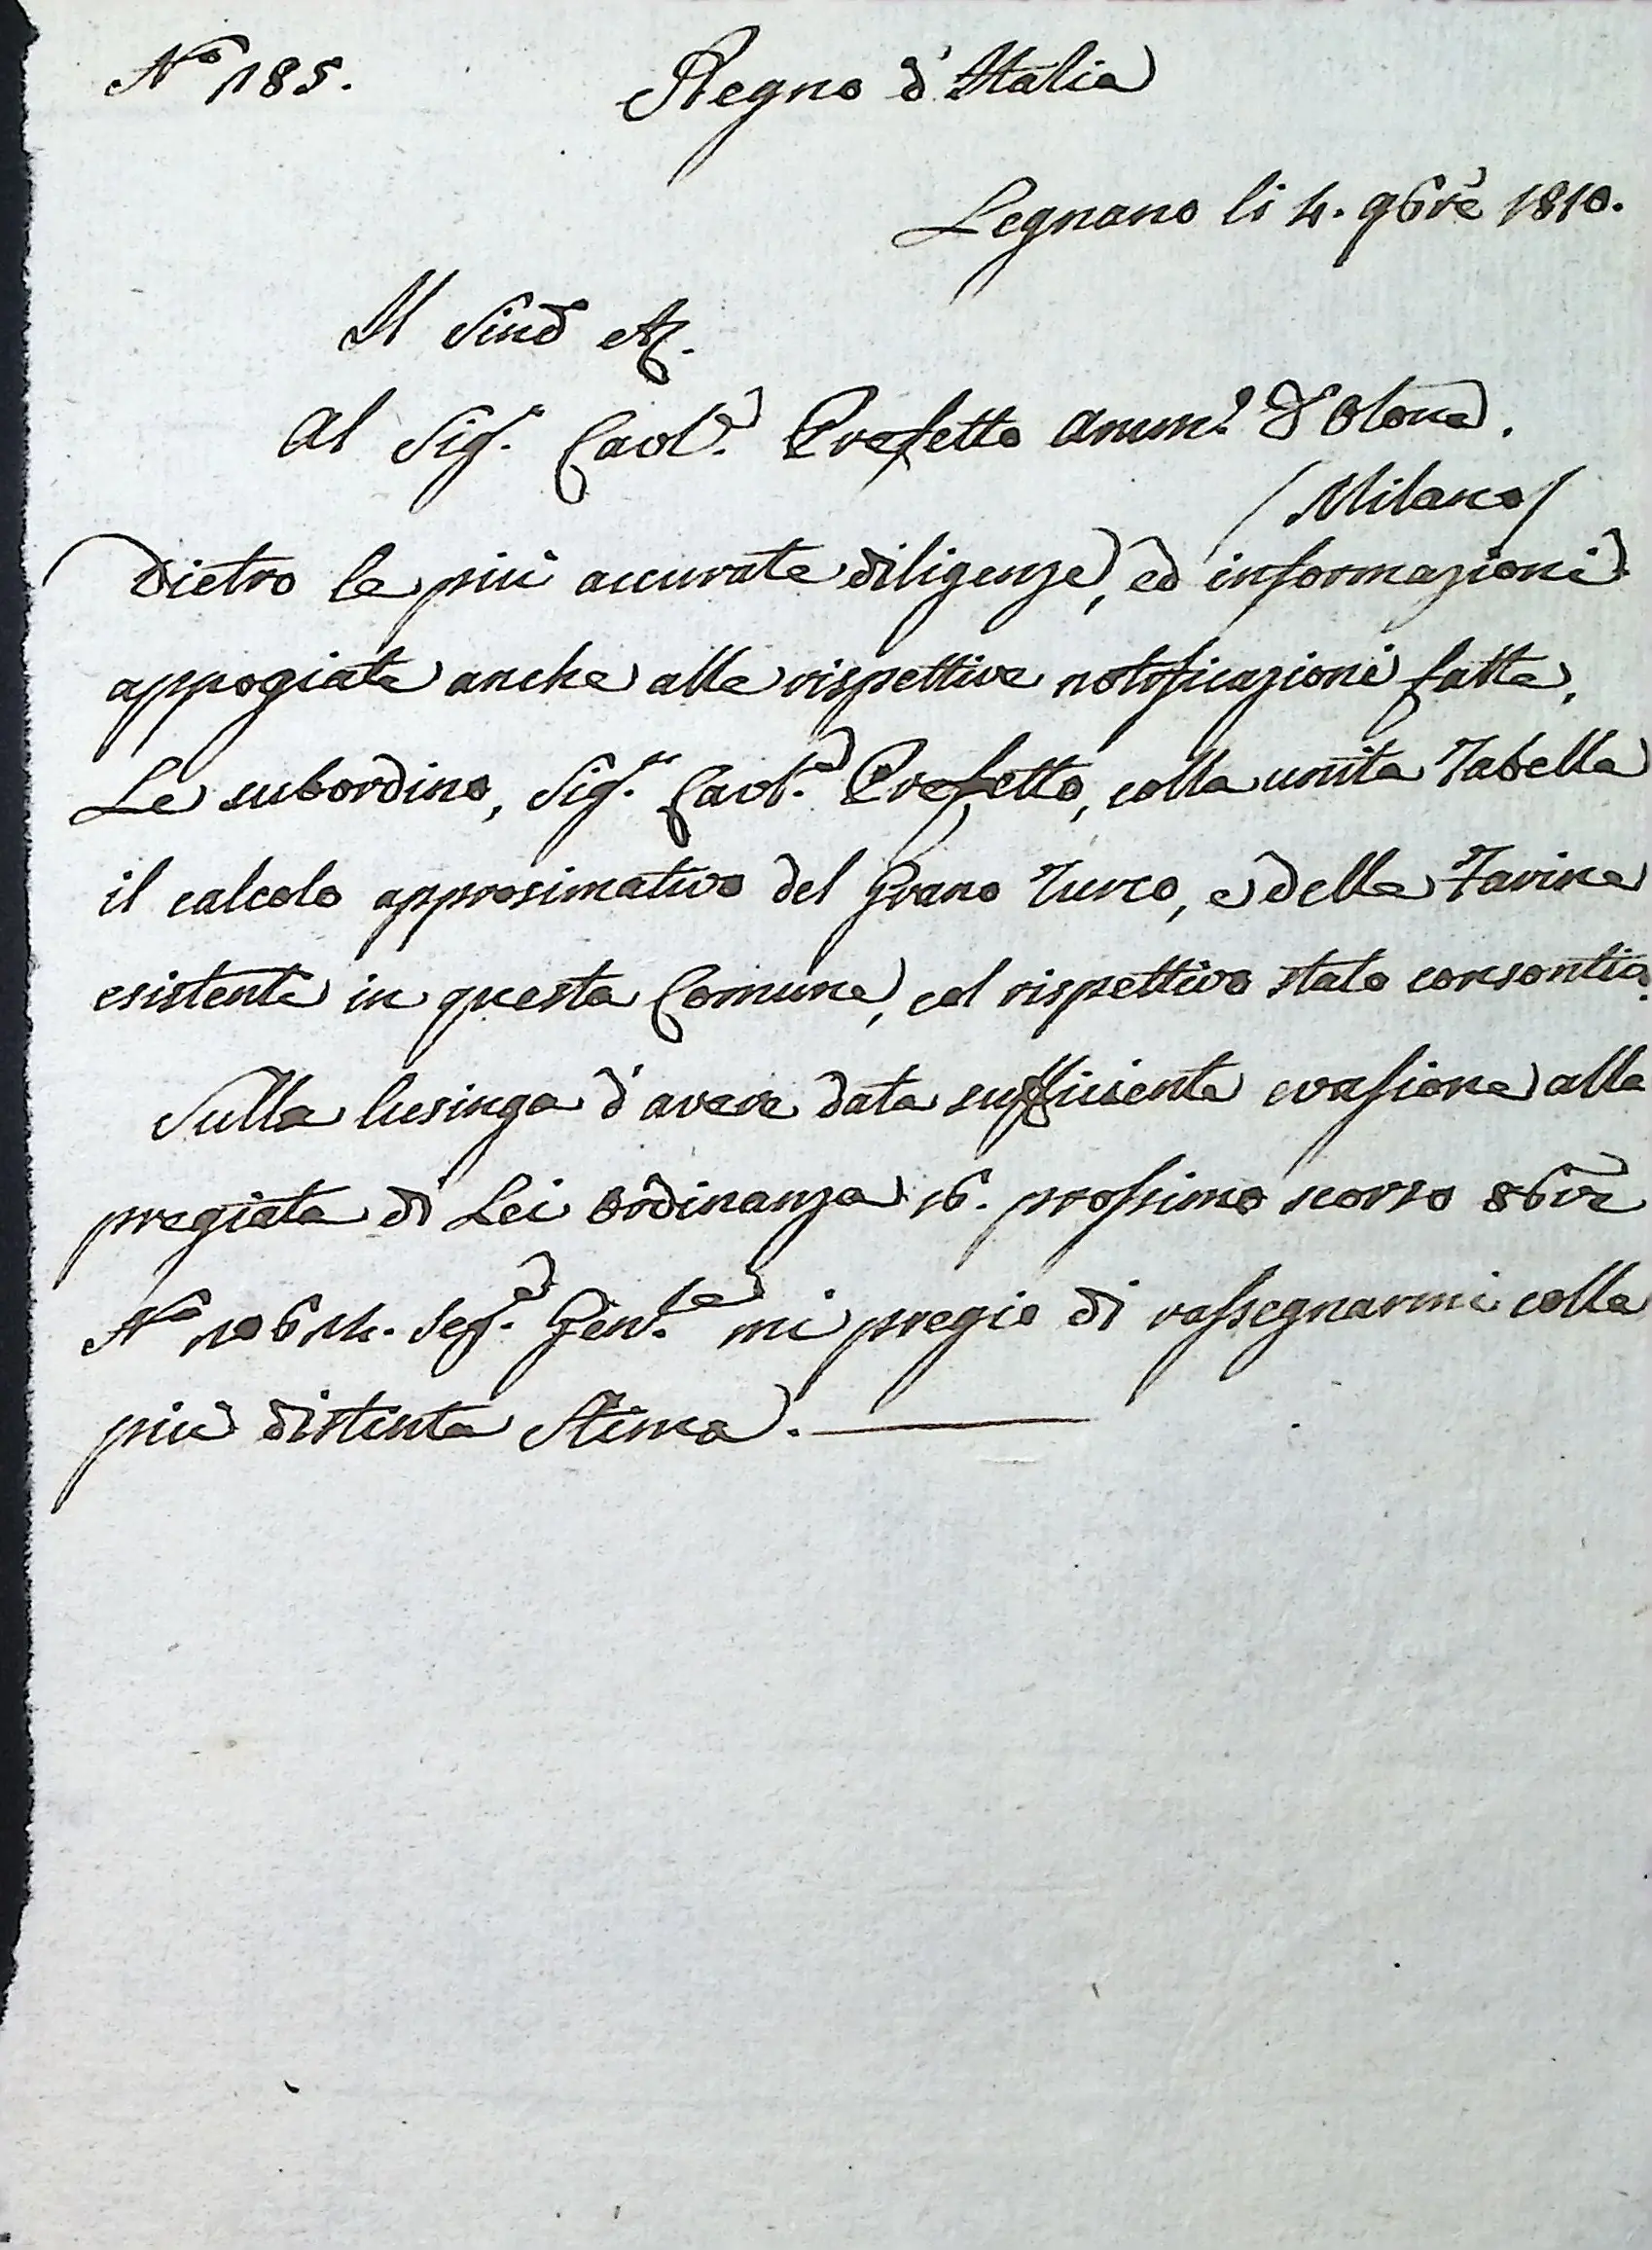 N.º 185. Regno d'Italia
Legnano li 4. 9bre 1810.
Il Sind
Al Sig.r Cavl.e Prefetto Amm.e d'Olona.
/Milano/
Dietro le più accurate diligenze, ed informazioni
appogiate anche alle rispettive notificazioni fatte,
Le subordino, Sig.r Cavl.e Prefetto, colla unita Tabella
il calcolo approsimativo del Grano Turco, e della Farina
esistente in questa Comune, col rispettivo stato
Sulla lusinga d'avere data sufficiente evasione alla
pregiata di Lei Ordinanza 16. prossimo scorso 8bre
N.º 10614. Sez.e Gen.le mi pregio di rassegnarmi colla
più distinta Stima.